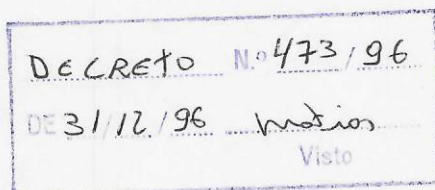 DECRETO N.º 473/96
DE 31/12/96
Visto